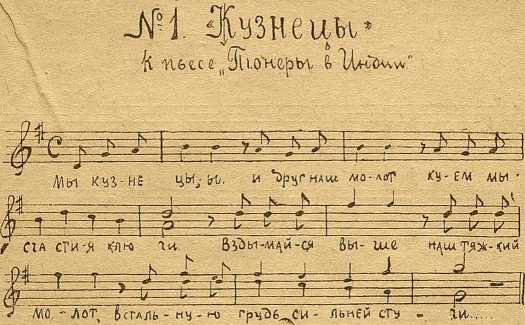 №1. «Кузнецы»
к пьесе „Пионеры в Индии"
Мы куз-не цы,-ы. и друг наш мо-лот ку-ем мы-
сча сти-я клю чи. Взды-май-ся вы-ше наш тяж-кий
мо-лот, встальну-ю грудь си-льней сту-чи.....